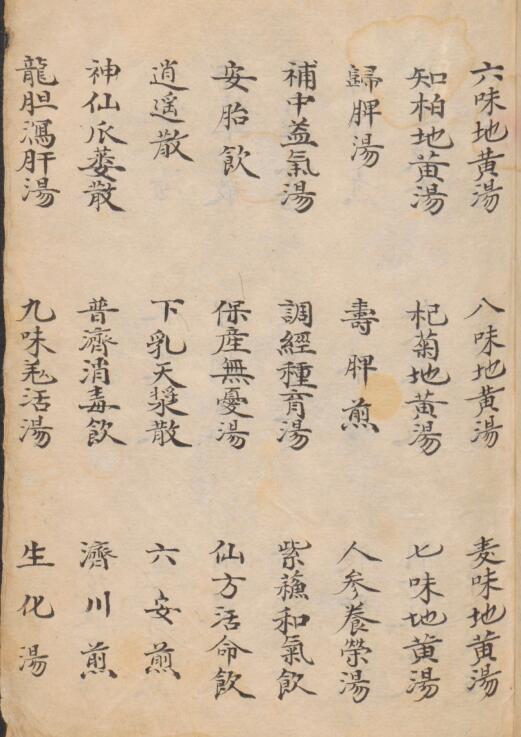 六味地黄湯　八味地黄湯　麦味地黄湯
知柏地黄湯　杞菊地黄湯　七味地黄湯
歸脾湯　壽脾煎　人參養榮湯
補中益氣湯　調經種育湯　紫蘓和氣飲
安胎飲　保産無憂湯　仙方活命飲
逍遥散　下乳天漿散　六安煎
神仙瓜蔞散　普濟消毒飲　濟川煎
龍胆瀉肝湯　九味羌活湯　生化湯